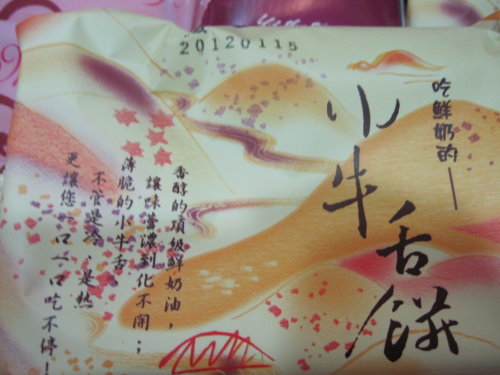 20120115
吃鮮奶的——
小牛舌餅
香醇的頂級鮮奶油，
讓味蕾濃到化不開；
薄脆的小牛舌，
不管是冷、是熱
更讓您一口一口吃不停！